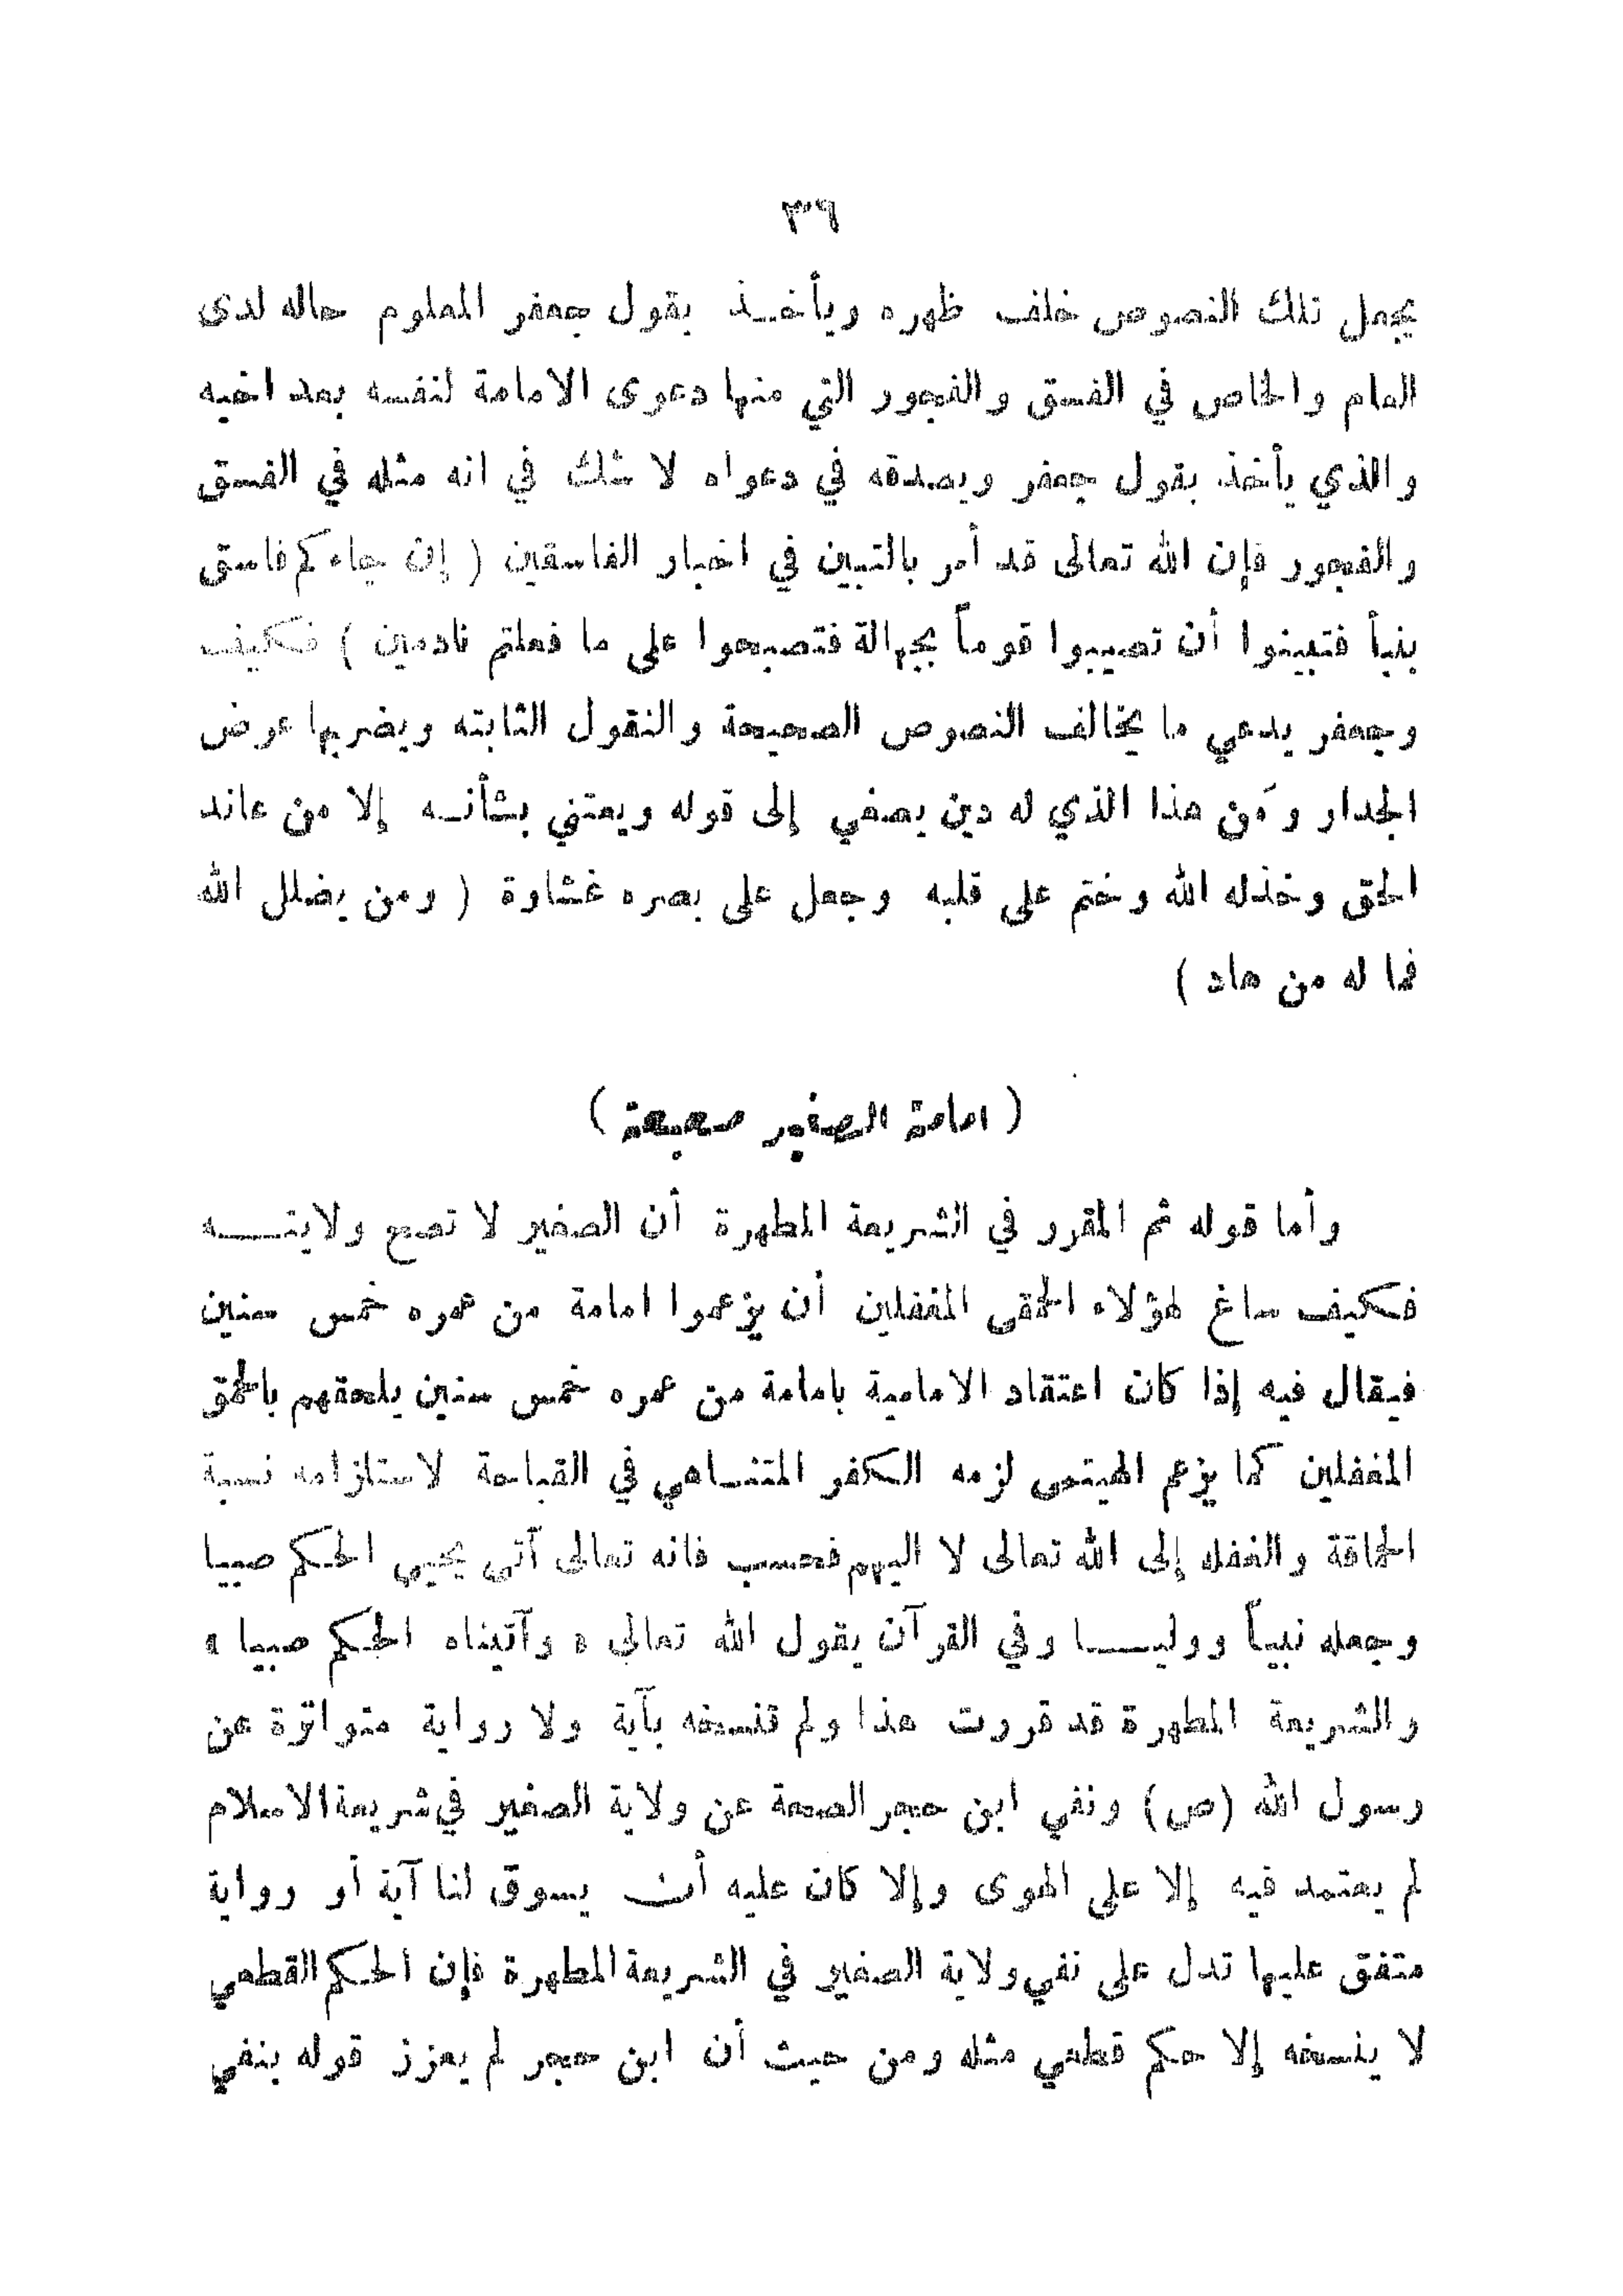 ٣٩
يجعل تلك النصوص خلف ظهره ويأخـذ بقول جعفر المعلوم حاله لدى
العام والخاص في الفسق والفجور التي منها دعوى الامامة لنفسه بعد اخيه
والذي يأخذ بقول جعفر ويصدقه في دعواه لا شك في انه مثله في الفسق
والفجور فإن الله تعالى قد أمر بالتبين في اخبار الفاسقين ( إن جاءكم فاسق
بنبأ فتبينوا أن تصيبوا قوماً بجهالة فتصبحوا على ما فعلتم نادمين ) فكيف
وجعفر يدعي ما يخالف النصوص الصحيحة والنقول الثابته ويضربها عرض
الجدار ومَن هذا الذي له دين يصغي إلى قوله ويعتني بشأنـه إلا من عاند
الحق وخذله الله وختم على قلبه وجعل على بصره غشاوة ( ومن يضلل الله
فما له من هاد )
( امامة الصغير صحيحة )
وأما قوله ثم المقرر في الشريعة المطهرة أن الصغير لا تصح ولايتـــه
فكيف ساغ لهؤلاء الحمقى المغفلين أن يزعموا امامة من عمره خمس سنين
فيقال فيه إذا كان اعتقاد الامامية بامامة من عمره خمس سنين يلحقهم بالحمق
المغفلين كما يزعم الهيتمى لزمه الكفر المتناهي في القباحة لاستلزامه نسبة
الحماقة والغفله إلى الله تعالى لا اليهم فحسب فانه تعالى آتى يحيى الحكم صبيا
وجعله نبياً ووليـــا وفي القرآن يقول الله تعالى « وآتيناه الحكم صبيا »
والشريعة المطهرة قد قررت هذا ولم تنسخه بآية ولا رواية متواترة عن
رسول الله (ص) ونفي ابن حجر الصحة عن ولاية الصغير في شريعة الاسلام
لم يعتمد فيه إلا على الهوى وإلا كان عليه أن يسوق لنا آية أو رواية
متفق عليها تدل على نفي ولاية الصغير في الشريعة المطهرة فإن الحكم القطعي
لا ينسخه إلا حكم قطعي مثله ومن حيث أن ابن حجر لم يعزز قوله بنفي